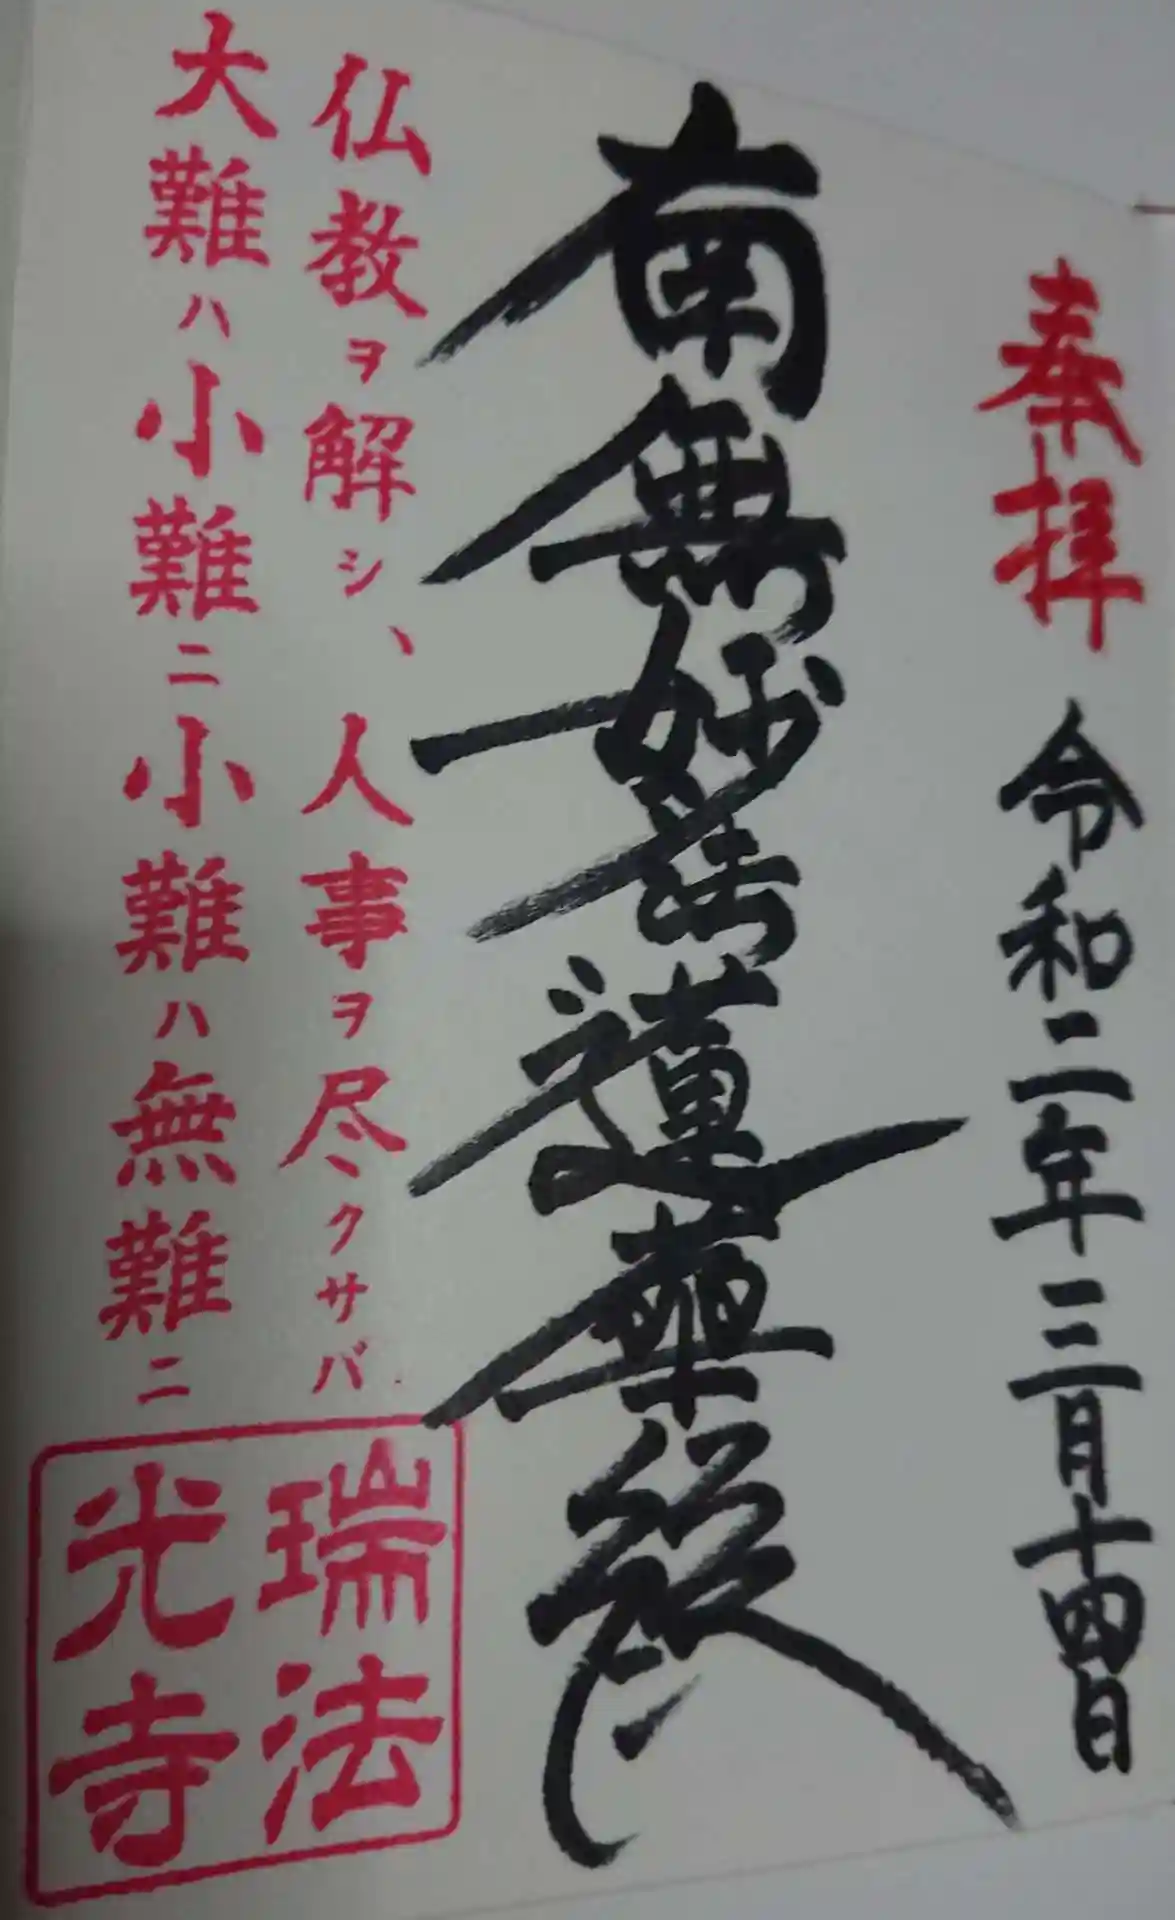 奉拝 令和二年三月十四日
南無妙法蓮華経
仏教ヲ解シ、人事ヲ尽クサバ
大難ハ小難ニ小難ハ無難ニ
瑞法
光寺